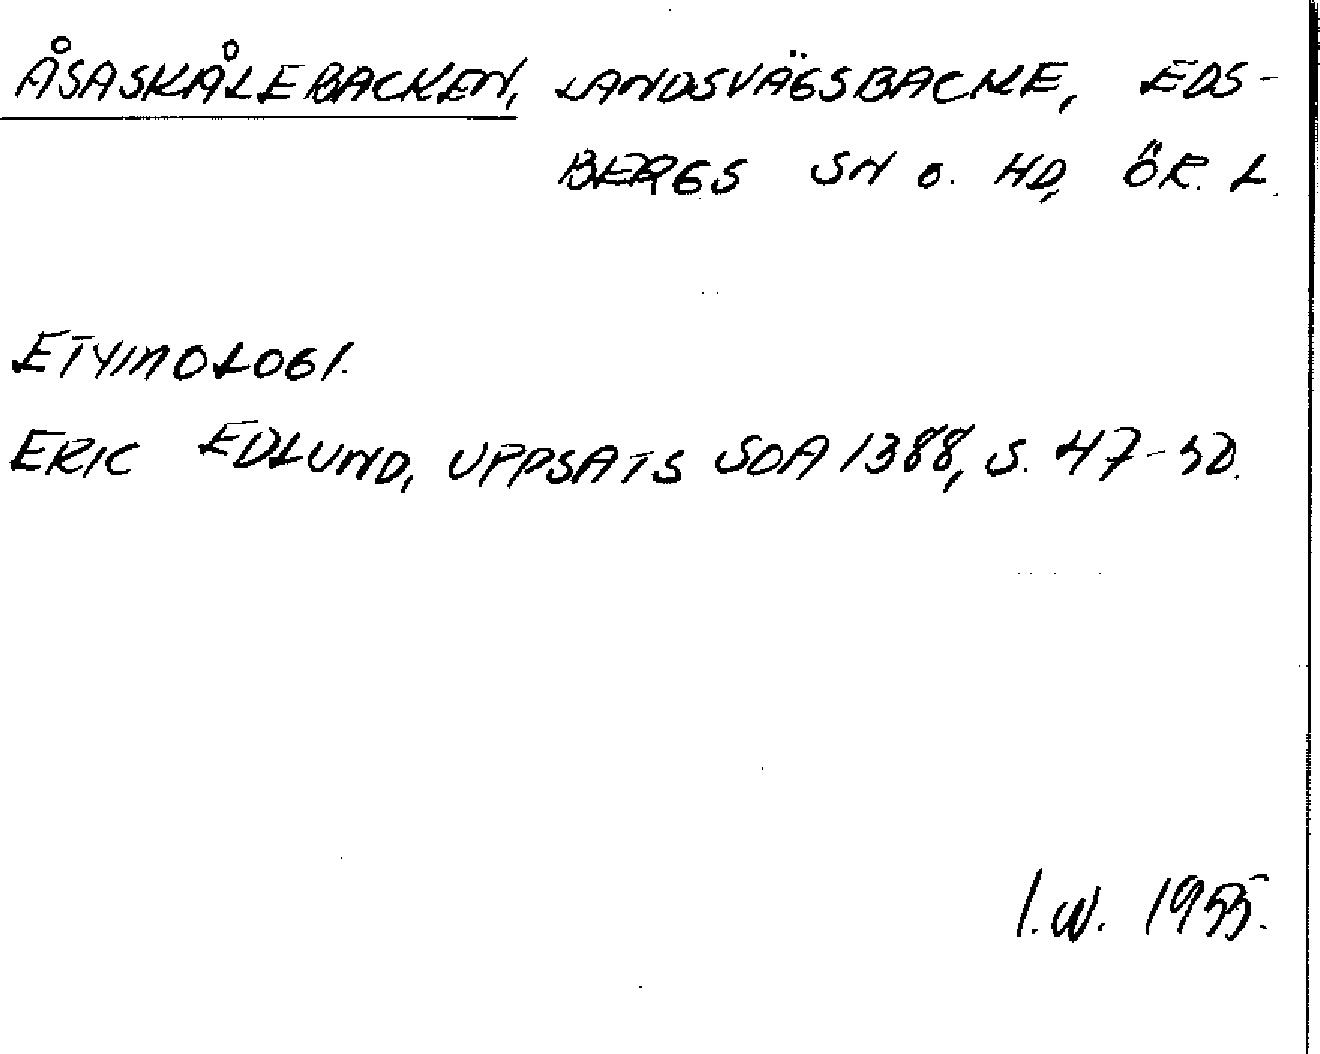 ÅSASKÅLEBACKEN, LANDSVÄGSBACKE, EDS-
BERGS SN o. HD, ÖR. L.
ETYMOLOGI.
ERIC EDLUND, UPPSATS SOA 1388, S. 47-50.
I.W. 1955.